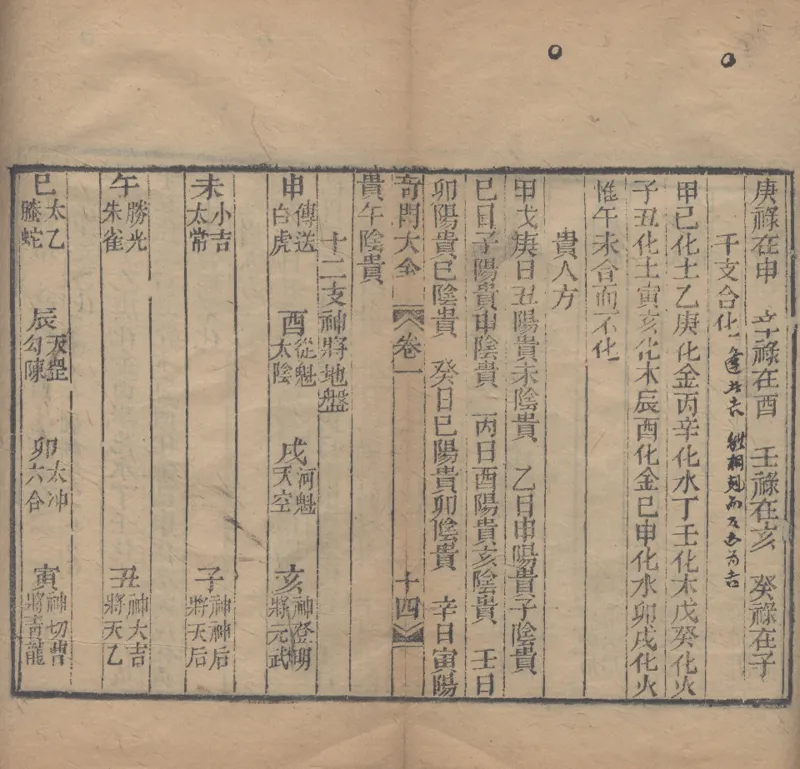 庚祿在申　辛祿在酉　壬祿在亥　癸祿在子
干支合化
甲己化土乙庚化金丙辛化水丁壬化木戊癸化火
子丑化土寅亥化木辰酉化金巳申化水卯戌化火
惟午未合而不化
貴人方
甲戊庚日丑陽貴未陰貴　乙日申陽貴子陰貴
巳日子陽貴申陰貴　丙日酉陽貴亥陰貴　壬日
卯陽貴巳陰貴　癸日巳陽貴卯陰貴　辛日寅陽
奇門大全　卷一　十四
貴午陰貴
十二支神將地盤
申 傳送 白虎　酉 從魁 太陰　戌 河魁 天空　亥 神登明 將元武
未 小吉 太常　子 神神后 將天后
午 勝光 朱雀　丑 神大吉 將天乙
巳 太乙 螣蛇　辰 天罡 勾陳　卯 太冲 六合　寅 神切曹 將青龍